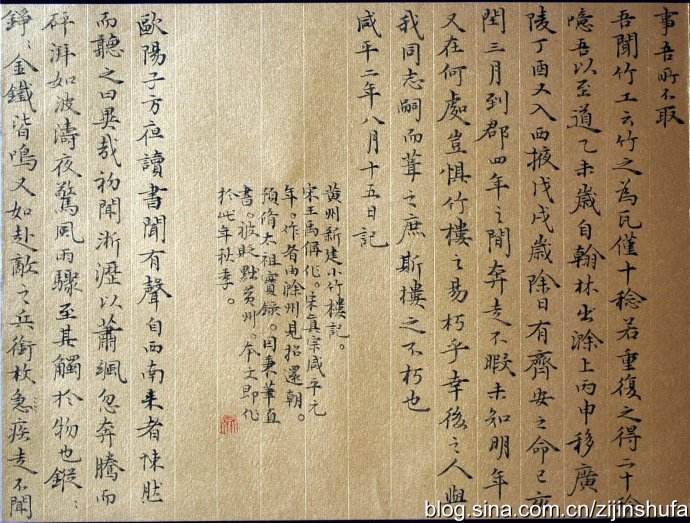 事吾所不取
吾聞竹工云竹之為瓦僅十稔若重復之得二十稔
噫吾以至道乙未歲自翰林出滁上丙申移廣
陵丁酉又入西掖戊戌歲除日有齊安之命己亥
閏三月到郡四年之間奔走不暇未知明年
又在何處豈惧竹樓之易朽乎幸後之人與
我同志嗣而葺之庶斯樓之不朽也
咸平二年八月十五日記
黄州新建小竹樓記。
宋王禹偁作。宋真宗咸平元
年。作者由滁州見招還朝。
預脩太祖實錄。因秉筆直
書。被貶黜黄州。本文即作
於此年秋季。
歐陽子方夜讀書聞有聲自西南来者悚然
而聽之曰異哉初聞淅瀝以蕭颯忽奔騰而
砰湃如波濤夜驚風雨驟至其觸於物也鏦:
錚:金鐵皆鳴又如赴敵之兵銜枚急疾走不聞
blog.sina.com.cn/zijinshufa